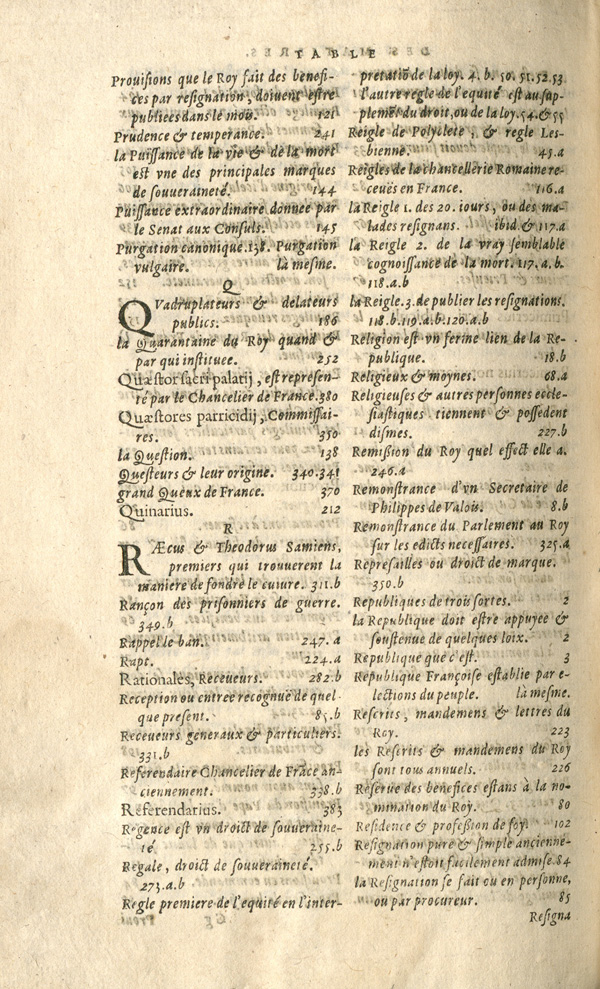 TABLE
Prouisions que le Roy fait des benefi-
ces par resignation, doiuent estre
publiees dans le mois. 121
Prudence & temperance. 241
la Puissance de la vie & de la mort
est vne des principales marques
de souueraineté. 144
Puissance extraordinaire donnee par
le Senat aux Consuls. 145
Purgation canonique. 138. Purgation
vulgaire. là mesme.
Q
QVadruplateurs & delateurs
publics. 186
la Quarantaine du Roy quand &
par qui instituee. 252
Quæstor sacri palatij, est represen-
té par le Chancelier de France. 380
Quæstores parricidij, Commissai-
res. 350
la Question. 138
Questeurs & leur origine. 340.341
grand Queux de France. 370
Quinarius. 212
R
RÆcus & Theodorus Samiens,
premiers qui trouuerent la
maniere de fondre le cuiure. 311.b
Rançon des prisonniers de guerre.
349.b
Rappel le ban. 247.a
Rapt. 224.a
Rationales, Receueurs. 282.b
Reception ou entree recognuë de quel-
que present. 85.b
Receueurs generaux & particuliers.
331.b
Referendaire Chancelier de Frāce an-
ciennement. 338.b
Referendarius. 383
Regence est vn droict de souueraine-
té 255.b
Regale, droict de souueraineté.
273.a.b
Regle premiere de l'equité en l'inter-
pretatiō de la loy. 4.b. 50.51.52.53
l'autre regle de l'equité est au sup-
plemēt du droit, ou de la loy. 54.&55
Reigle de Polyclete, & regle Les-
bienne. 45.a
Reigles de la chancellerie Romaine re-
ceuës en France. 116.a
la Reigle 1. des 20. iours, ou des ma-
lades resignans. ibid & 117.a
la Reigle 2. de la vray semblable
cognoissance de la mort. 117.a.b.
118.a.b
la Reigle. 3. de publier les resignations.
118.b.119.a.b.120.a.b
Religion est vn ferme lien de la Re-
publique. 18.b
Religieux & moynes. 68.a
Religieuses & autres personnes eccle-
siastiques tiennent & possedent
dismes. 227.b
Remission du Roy quel effect elle a.
246.a
Remonstrance d'vn Secretaire de
Philippes de Valois. 8.b
Remonstrance du Parlement au Roy
sur les edicts necessaires. 325.a
Represailles ou droict de marque.
350.b
Republiques de trois sortes. 2
la Republique doit estre appuyee &
soustenue de quelques loix. 2
Republique que c'est. 3
Republique Françoise establie par e-
lections du peuple. là mesme.
Rescrits, mandemens & lettres du
Roy. 223
les Rescrits & mandemens du Roy
sont tous annuels. 226
Reserue des benefices estans à la no-
mination du Roy. 80
Residence & profession de foy. 102
Resignation pure & simple ancienne-
ment n'estoit facilement admise. 84
la Resignation se fait ou en personne,
ou par procureur. 85
Resigna